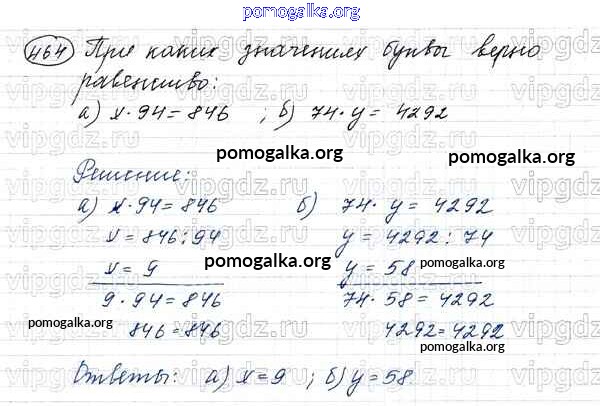 pomogalka.org
464 При каких значениях буквы верно
равенство:
а) x · 94 = 846 ; б) 74 · y = 4292
pomogalka.org pomogalka.org
Решение:
pomogalka.org
а) x · 94 = 846 б) 74 · y = 4292
x = 846 : 94 y = 4292 : 74
x = 9 pomogalka.org y = 58 pomogalka.org
9 · 94 = 846 74 · 58 = 4292
pomogalka.org 846 = 846 4292 = 4292
pomogalka.org
Ответы: а) x = 9 ; б) y = 58.
vipgdz.ru